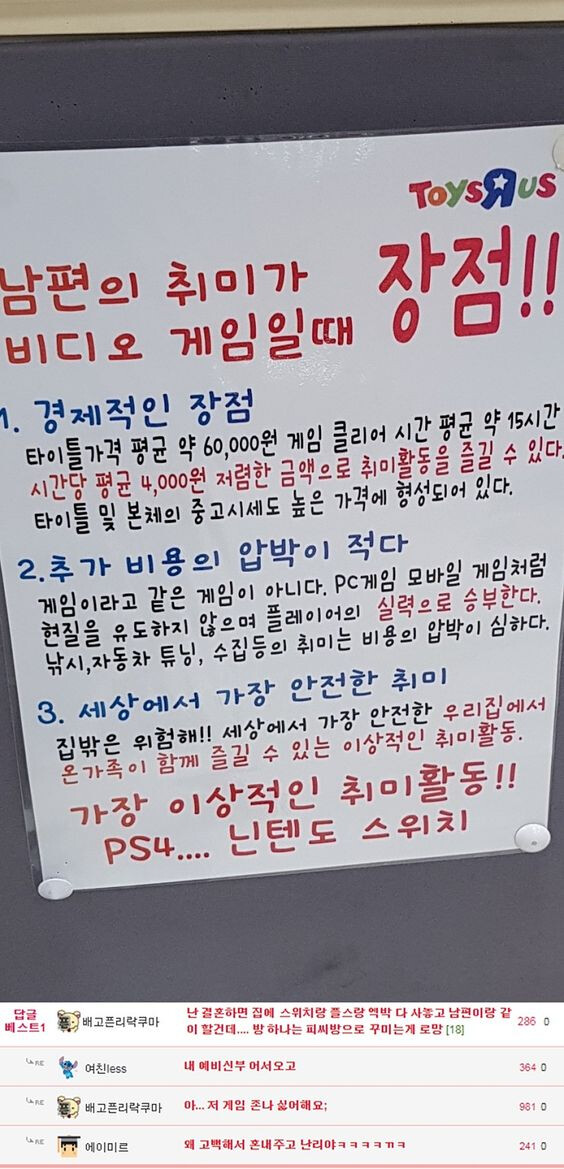 TOYSЯUS
남편의 취미가
비디오 게임일때 장점!!
1. 경제적인 장점
타이틀가격 평균 약 60,000원 게임 클리어 시간 평균 약 15시간
시간당 평균 4,000원 저렴한 금액으로 취미활동을 즐길 수 있다.
타이틀 및 본체의 중고시세도 높은 가격에 형성되어 있다.
2.추가 비용의 압박이 적다
게임이라고 같은 게임이 아니다. PC게임 모바일 게임처럼
현질을 유도하지 않으며 플레이어의 실력으로 승부한다.
낚시,자동차 튜닝, 수집등의 취미는 비용의 압박이 심하다.
3. 세상에서 가장 안전한 취미
집밖은 위험해!! 세상에서 가장 안전한 우리집에서
온가족이 함께 즐길 수 있는 이상적인 취미활동.
가장 이상적인 취미활동!!
PS4.... 닌텐도 스위치
답글
베스트1
배고픈리락쿠마
난 결혼하면 집에 스위치랑 플스랑 엑박 다 사놓고 남편이랑 같
이 할건데.... 방 하나는 피씨방으로 꾸미는게 로망 [18]
286 0
RE 여친less 내 예비신부 어서오고 364 0
RE 배고픈리락쿠마 아... 저 게임 존나 싫어해요; 981 0
RE 에이미르 왜 고백해서 혼내주고 난리야ㅋㅋㅋㅋㄲㅋ 241 0